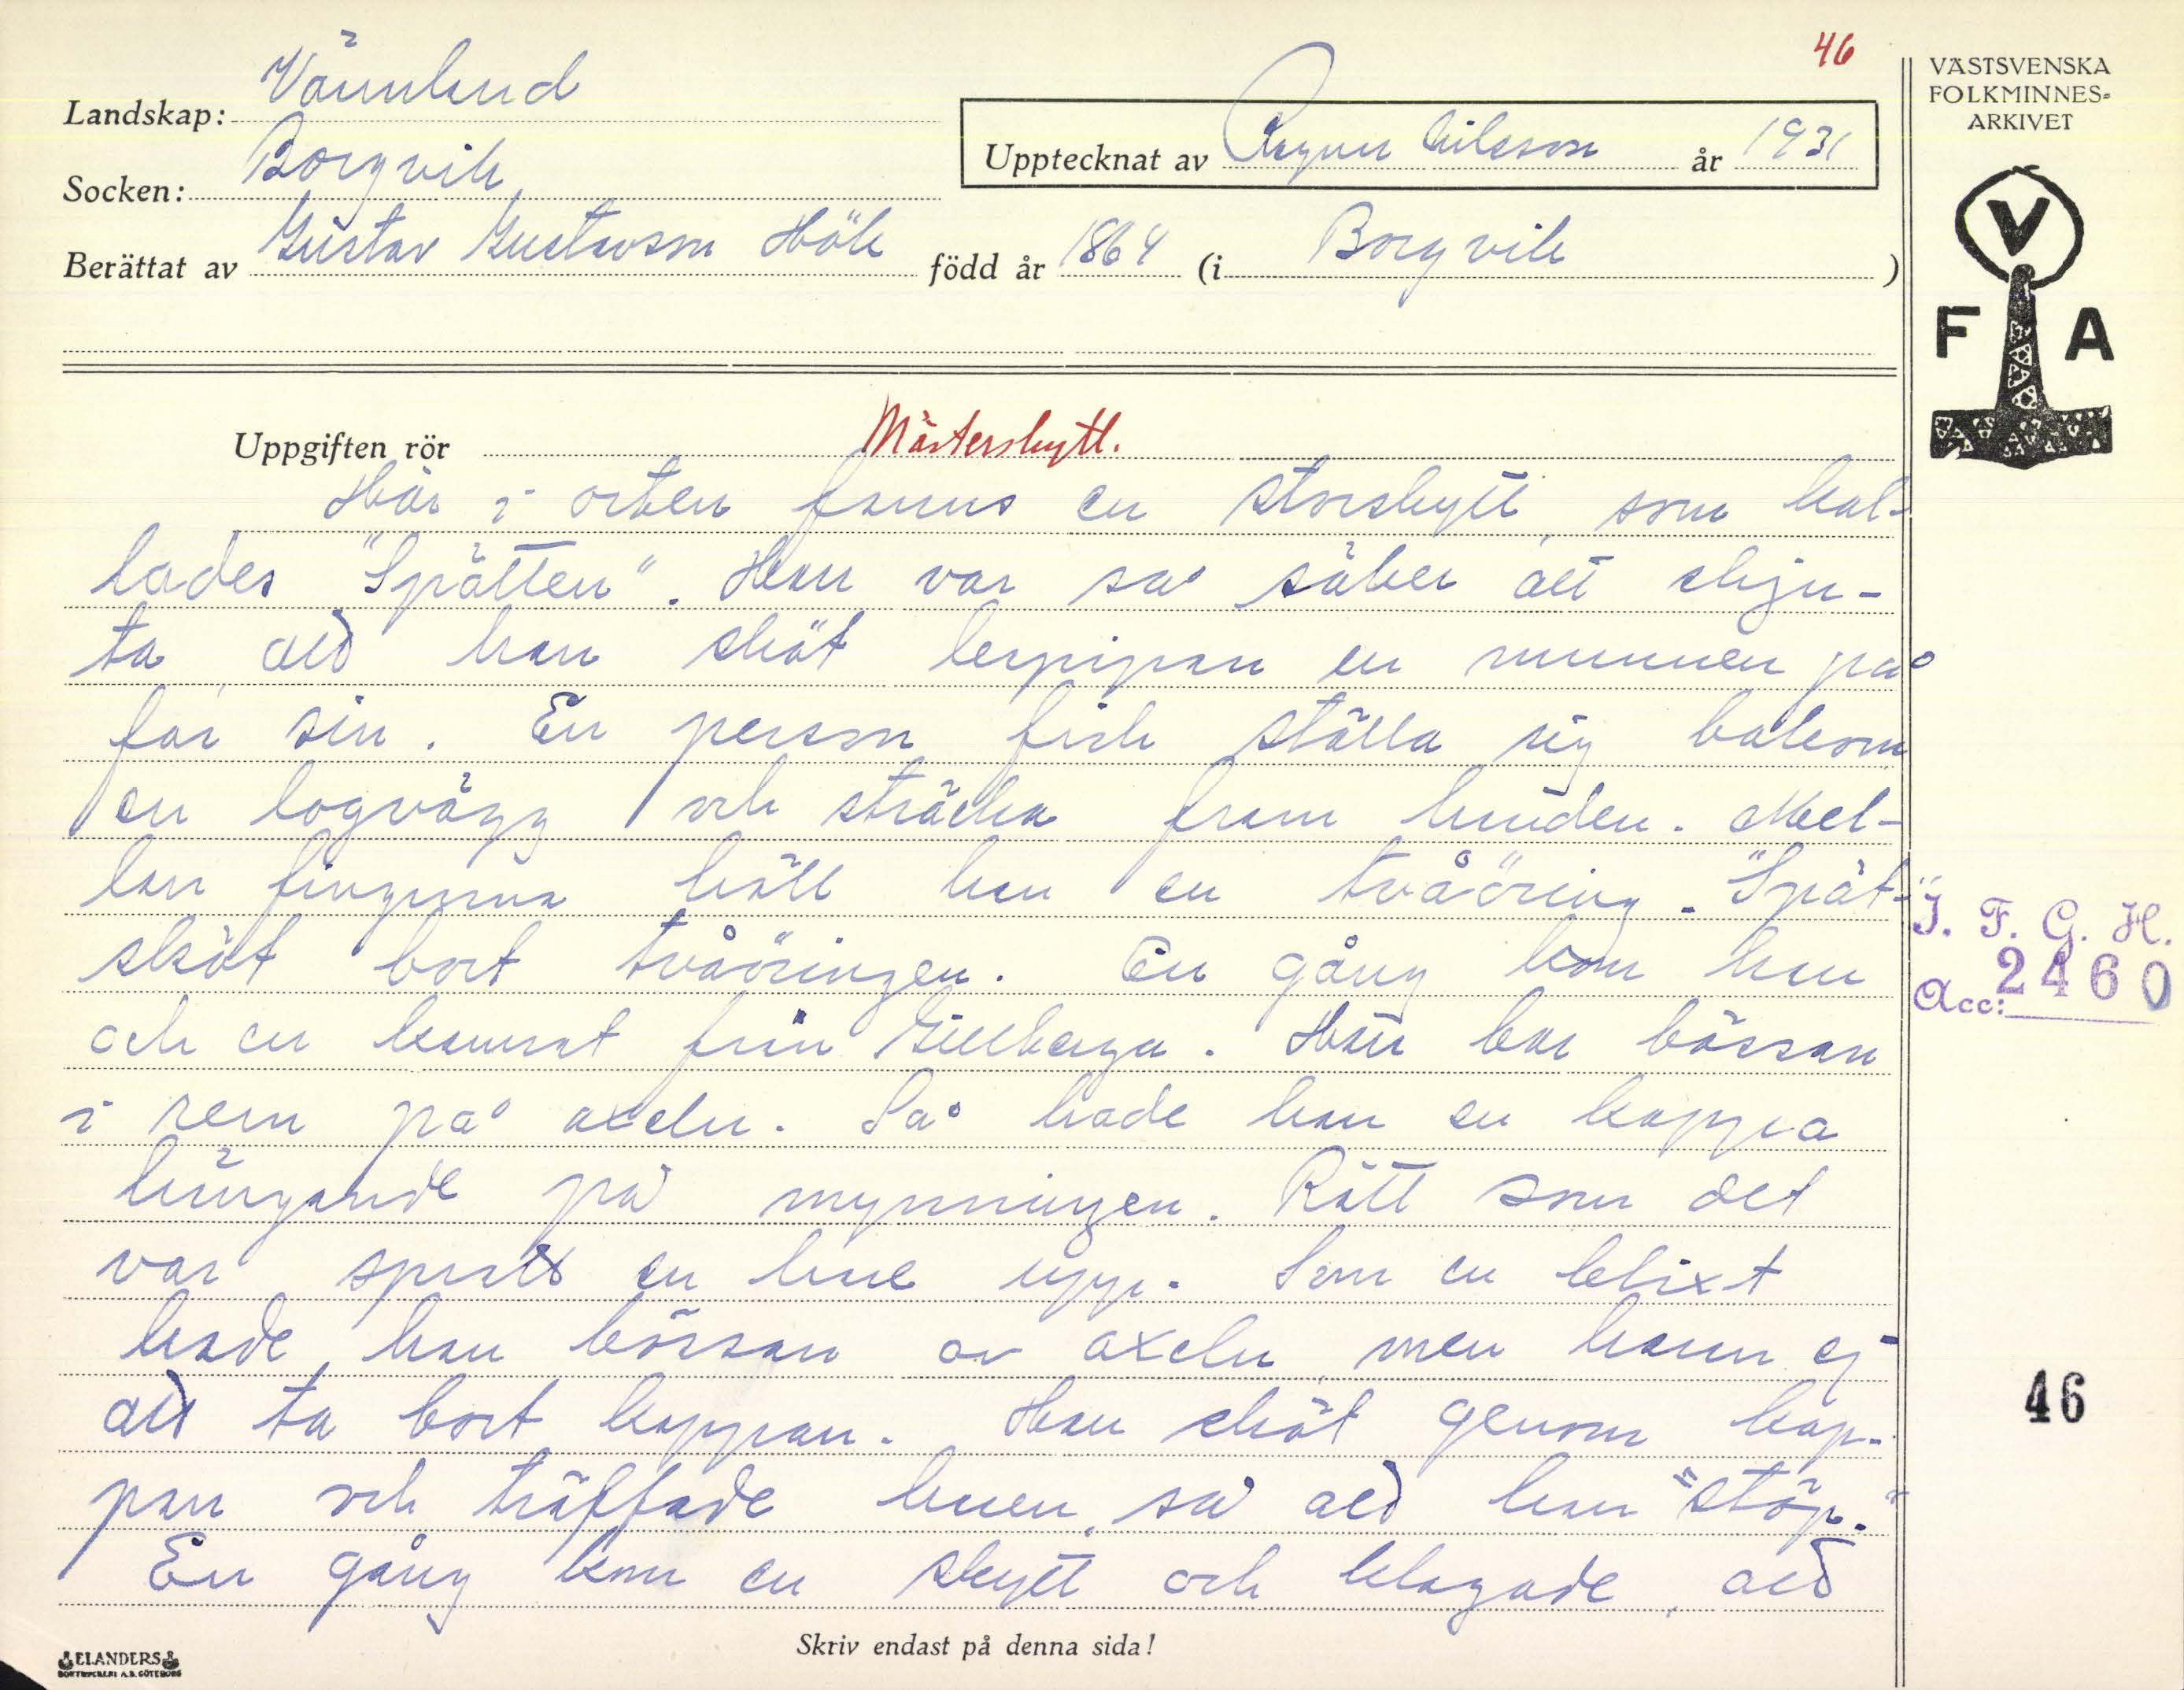 46
Landskap: Värmland
Socken: Borgvik
Upptecknat av Ragnar Nilsson år 1931
Berättat av Gustav Gustavsson Hök född år 1864 (i Borgvik )
VÄSTSVENSKA
FOLKMINNES-
ARKIVET
V
F A
Uppgiften rör Mästerskytt.
Här i orten fanns en storskytt, som kal-
lades "Spätten". Han var så säker att skju-
ta, att han sköt lerpipan ur munnen på
far sin. En person fick ställa sig bakom
en logvägg och sträcka fram handen. Mel-
lan fingrarna höll han en tvåöring. "Spät-"
sköt bort tvåöringen. En gång kom han
och en kamrat från Gillberga. Han bar bössan
i rem på axeln. Så hade han en kappa
hängande på mynningen. Rätt som det
var sprats en hare upp. Som en blixt
hade han bössan av axeln, men hann ej
att ta bort kappan. Han sköt genom kap-
pan och träffade haren, så att han "stöp."
En gång kom en skytt och klagade, att
J. F. G. H.
Acc: 2460
46
Skriv endast på denna sida!
ELANDERS
BOKTRYCKERI A.B. GÖTEBORG